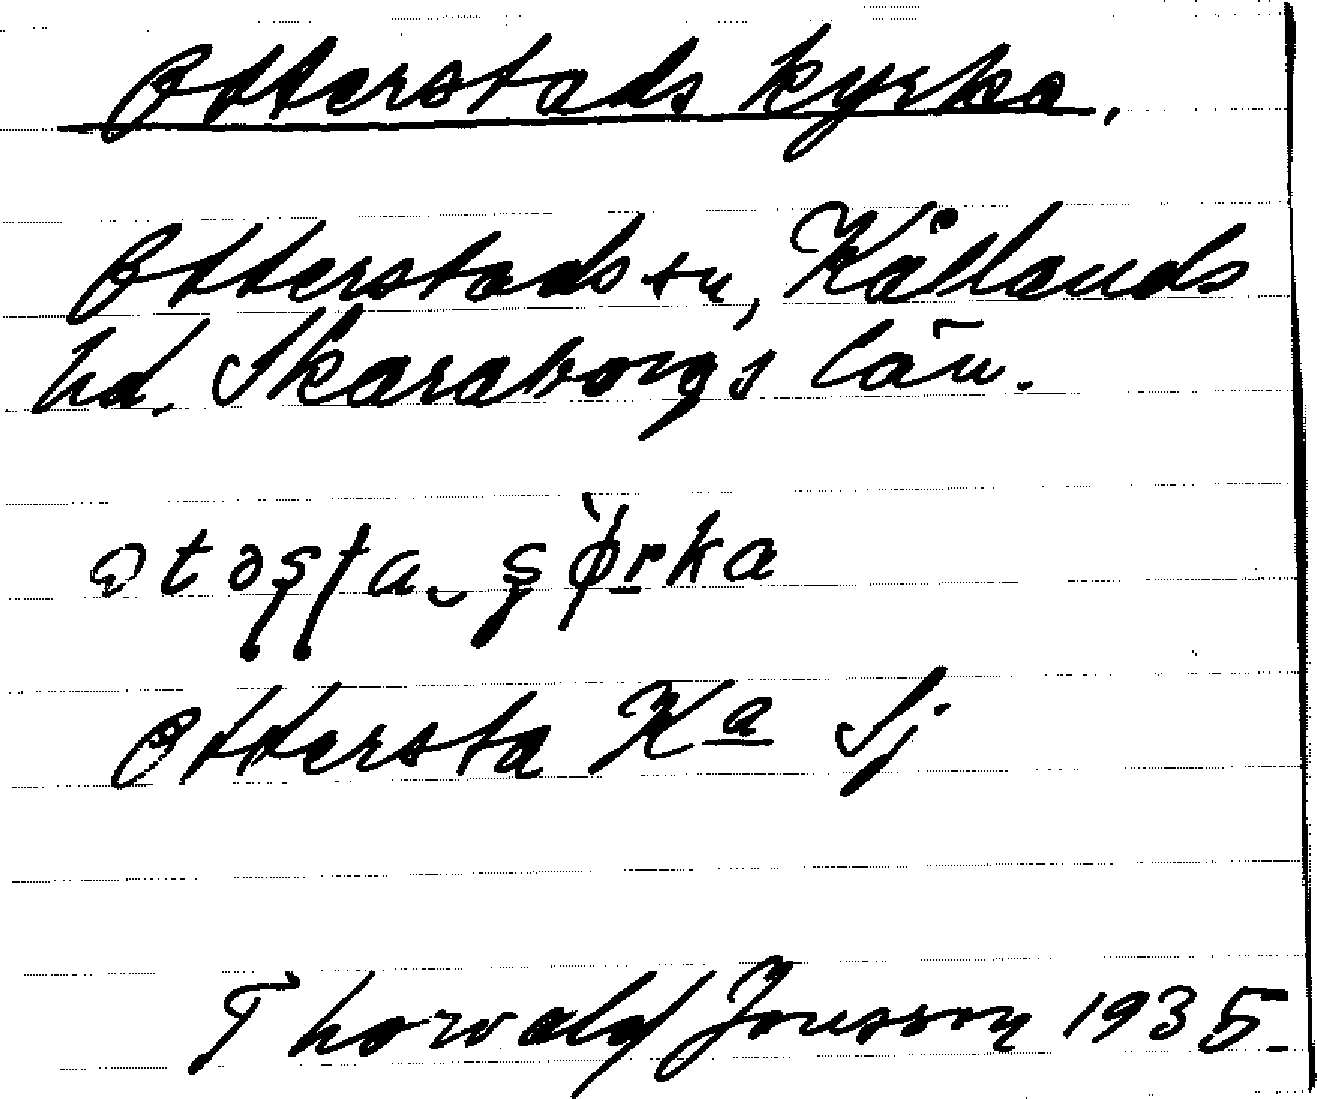 Otterstads kyrka.
Otterstads sn, Kållands
hd. Skaraborgs län.
Ottersta Ka Sj.
Thorvald Jonsson 1935.